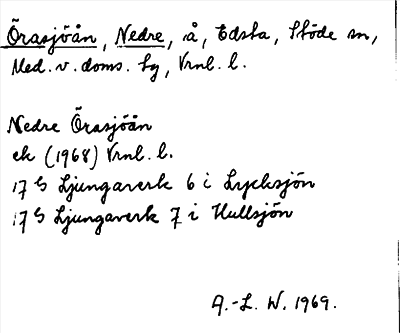 Örasjöån, Nedre, å, Edsta, Stöde sn,
Med. v. doms. sg, Vrnl. l.
Nedre Örasjöån
ek (1968) Vrnl. l.
17 G Ljungaverk 6 i Lycksjön
17 G Ljungaverk 7 i Hullsjön
A.-L. W. 1969.